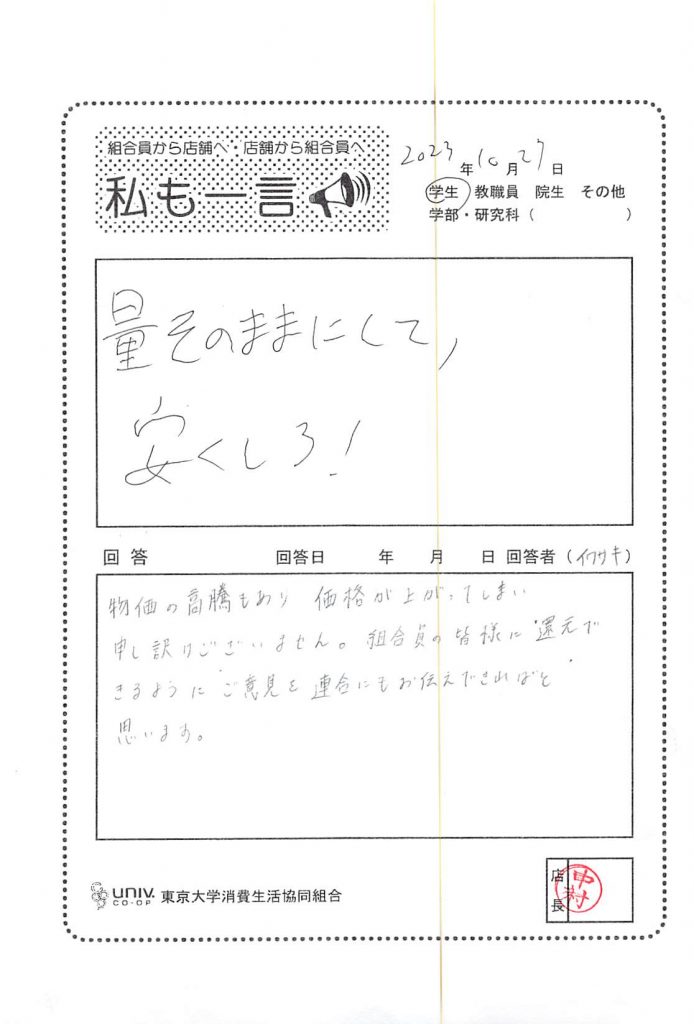 組合員から店舗へ・店舗から組合員へ
私も一言
2023年10月27日
学生 教職員 院生 その他
学部・研究科( )
量そのままにして,
安くしろ!
回答 回答日 年 月 日 回答者(イワサキ)
物価の高騰もあり 価格が上がってしまい
申し訳けございません。組合員の皆様に還元で
きるように ご意見を連合にもお伝えできればと
思います。
UNIV. CO-OP 東京大学消費生活協同組合
店長
中村